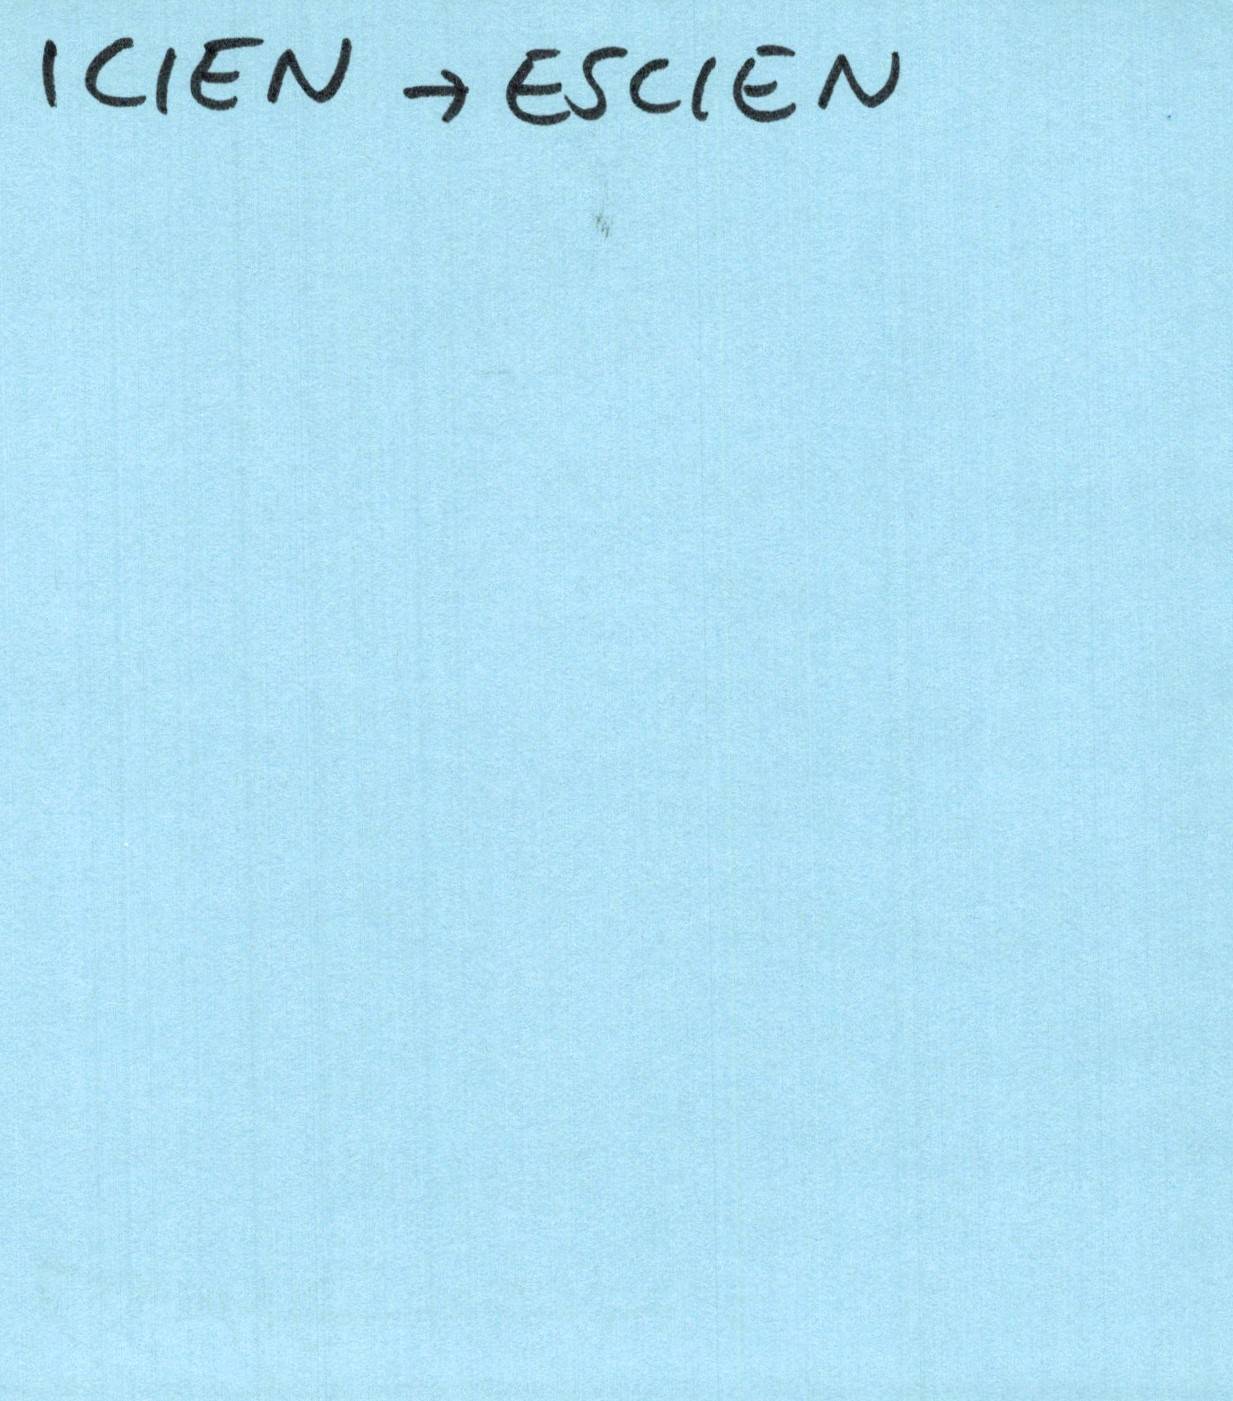 ICIEN → ESCIEN